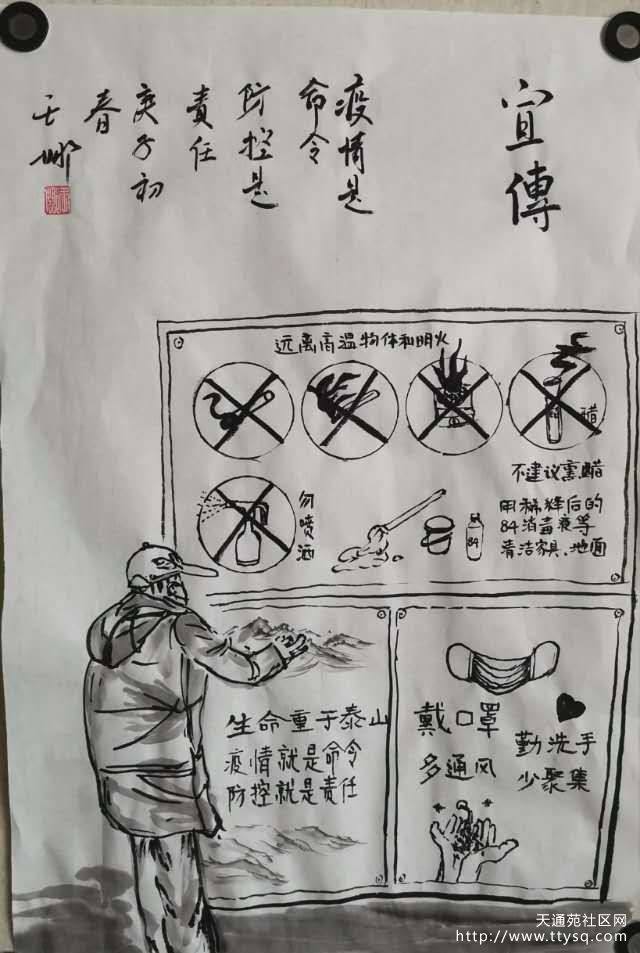 宣傳
疫情是
命令
防控是
責任
庚子初
春
远离高温物体和明火
醋
不建议熏醋
勿喷洒
84
用稀释后的
84消毒液等
清洁家具、地面
生命重于泰山
疫情就是命令
防控就是责任
戴口罩
多通风
勤洗手
少聚集
天通苑社区网
http://www.ttysq.com